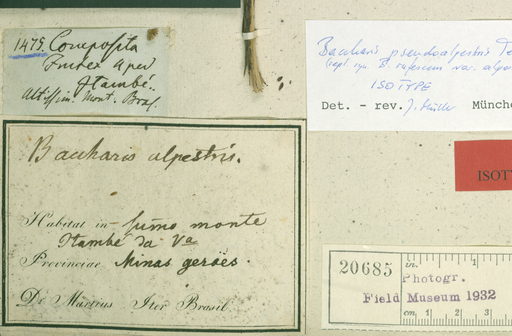 1475. Composita
Frutex aper
Itambé.
Altissim. Mont. Bras.
Baccharis alpestris.
Habitat in summo monte
Itambé da Va
Provinciae Minas geraës.
Dr. Martius Iter Brasil.
Baccharis pseudoalpestris
B. rufescens var. alpes
ISOTYPE
Det. - rev. J. Müller Münche
ISOTY
20685
in. 1
Photogr.
Field Museum 1932
cm 1 2 3